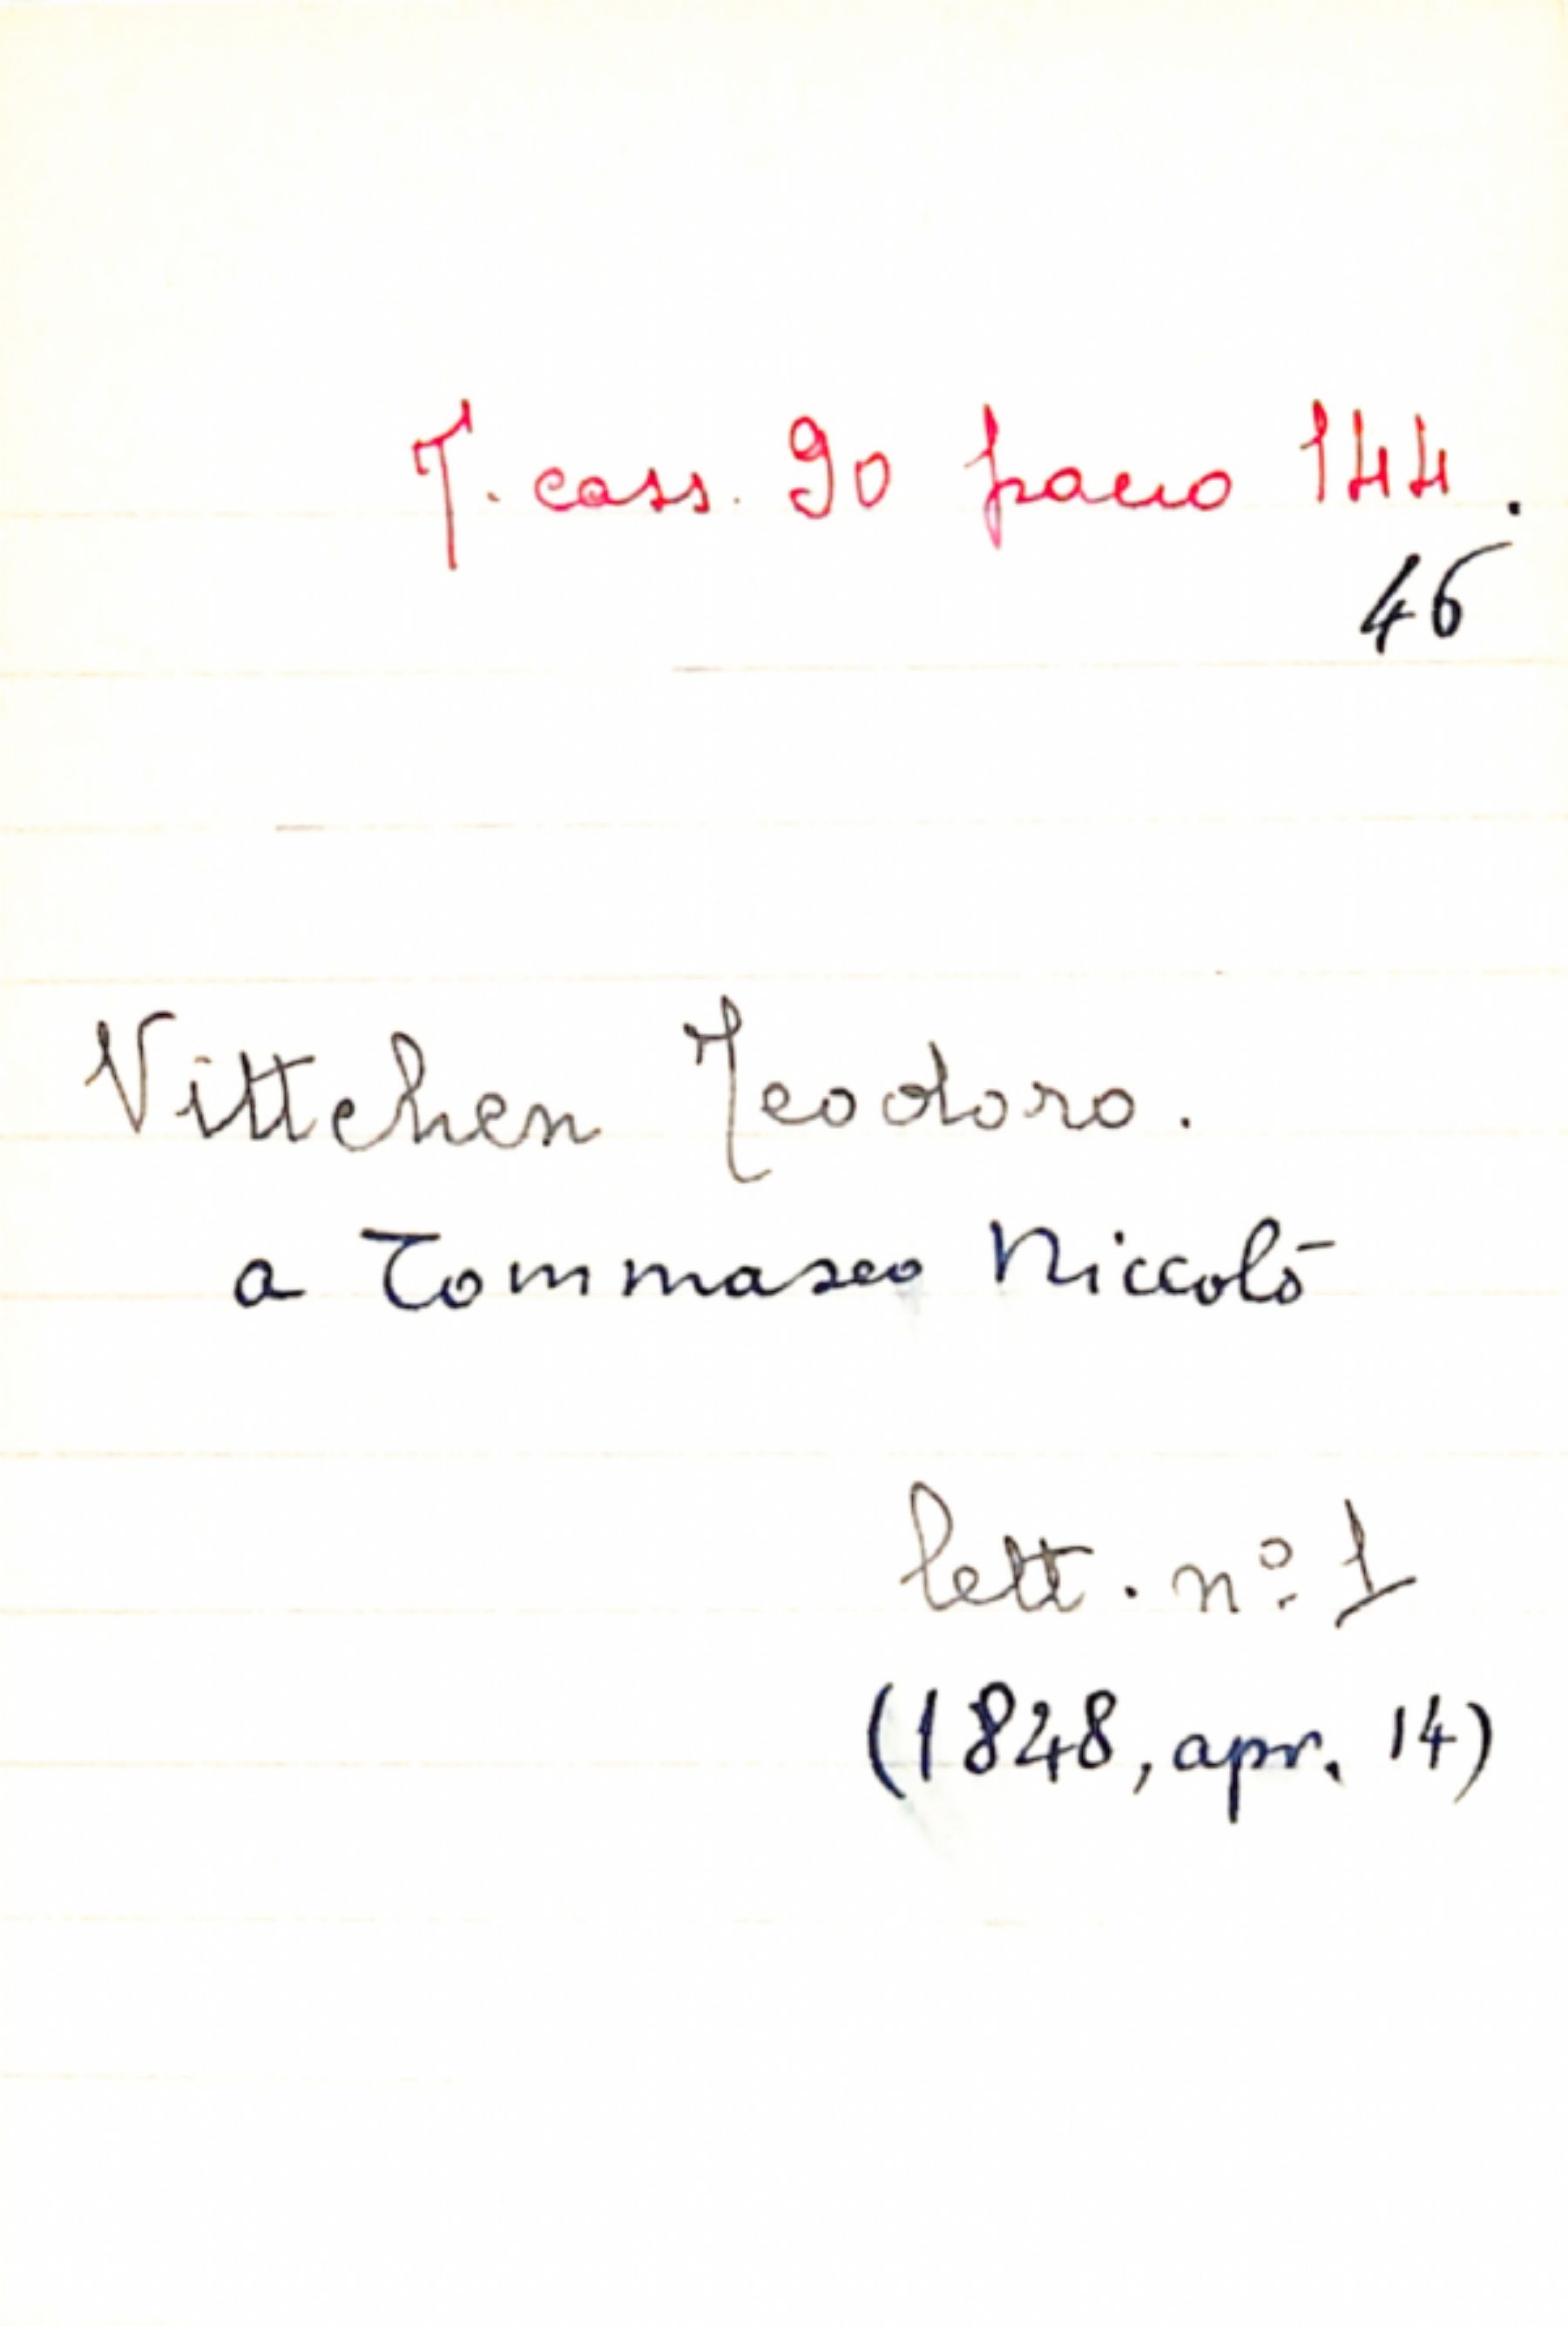 T. cass. 90 pacco 144.
46
Vittchen Teodoro.
a Tommaseo Niccolò
lett. nº 1
(1848, apr. 14)